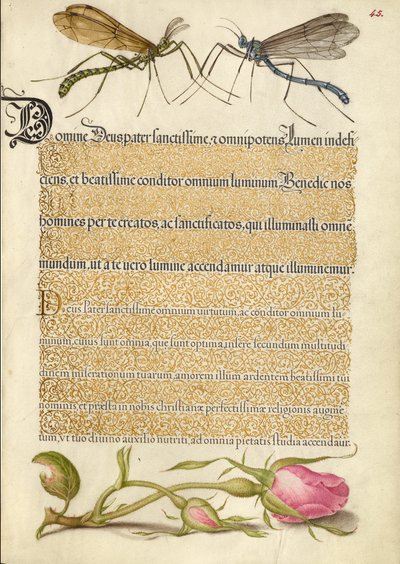 45.
Domine Deus pater sanctissime, & omnipotens, Lumen indefi
ciens, et beatissime conditor omnium luminum Benedic nos
homines per te creatos, ac sanctificatos, qui illuminasti omne
mundum, ut a te vero lumine accendamur atque illuminemur.
Deus Pater sanctissime omnium virtutum, ac conditor omnium lu
minum, cuius sunt omnia, quæ sunt optima, insere secundum multitudi
dinem miserationum tuarum, amorem illum ardentem beatissimi tui
nominis, et præsta in nobis christianæ perfectissimæ religionis augme
tum, vt tuo divino auxilio nutriti, ad omnia pietatis studia accendaur.